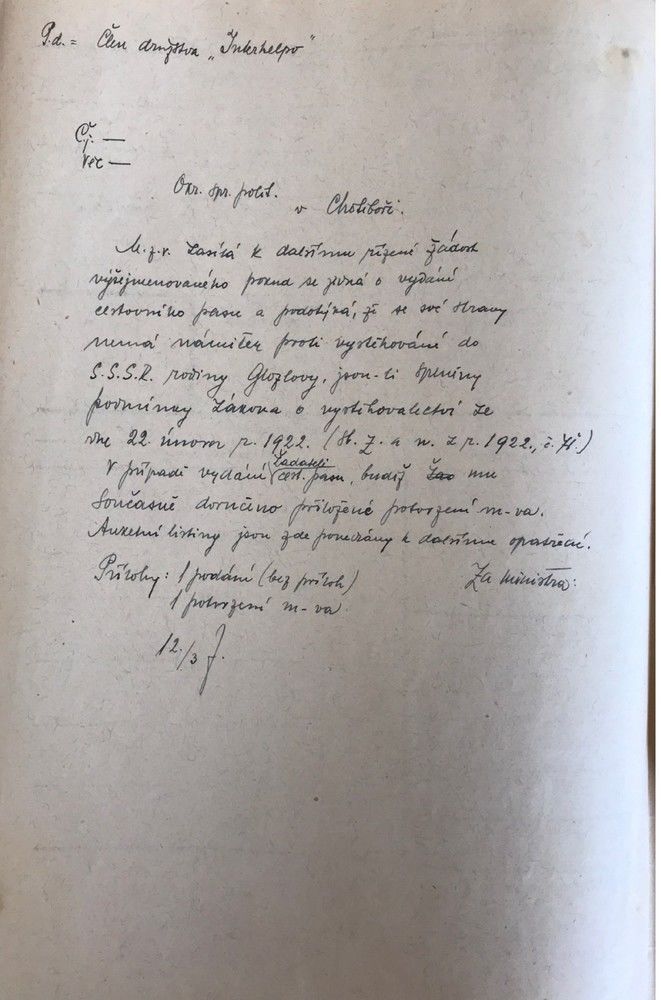 P.d. = Člen družstva „Interhelpo"
Čj. —
Věc —
Okr. spr. polit.
v Chotěboři.
M.z.v. zasílá k dalšímu řízení žádost
výšejmenovaného pokud se jedná o vydání
cestovního pasu a podotýká, že se své strany
nemá námitek proti vystěhování do
S.S.S.R. rodiny, jsou-li splněny
podmínky zákona o vystěhovalectví ze
dne 22. února r. 1922. (Sb. z. a n. z r. 1922., č. 71.)
V případě vydání žadateli cest. pasu, budiž mu
současně doručeno přiložené potvrzení m-va.
Anketní listiny jsou zde ponechány k dalšímu opatření.
Přílohy: 1 podání (bez příloh) Za ministra:
1 potvrzení m-va
12./3